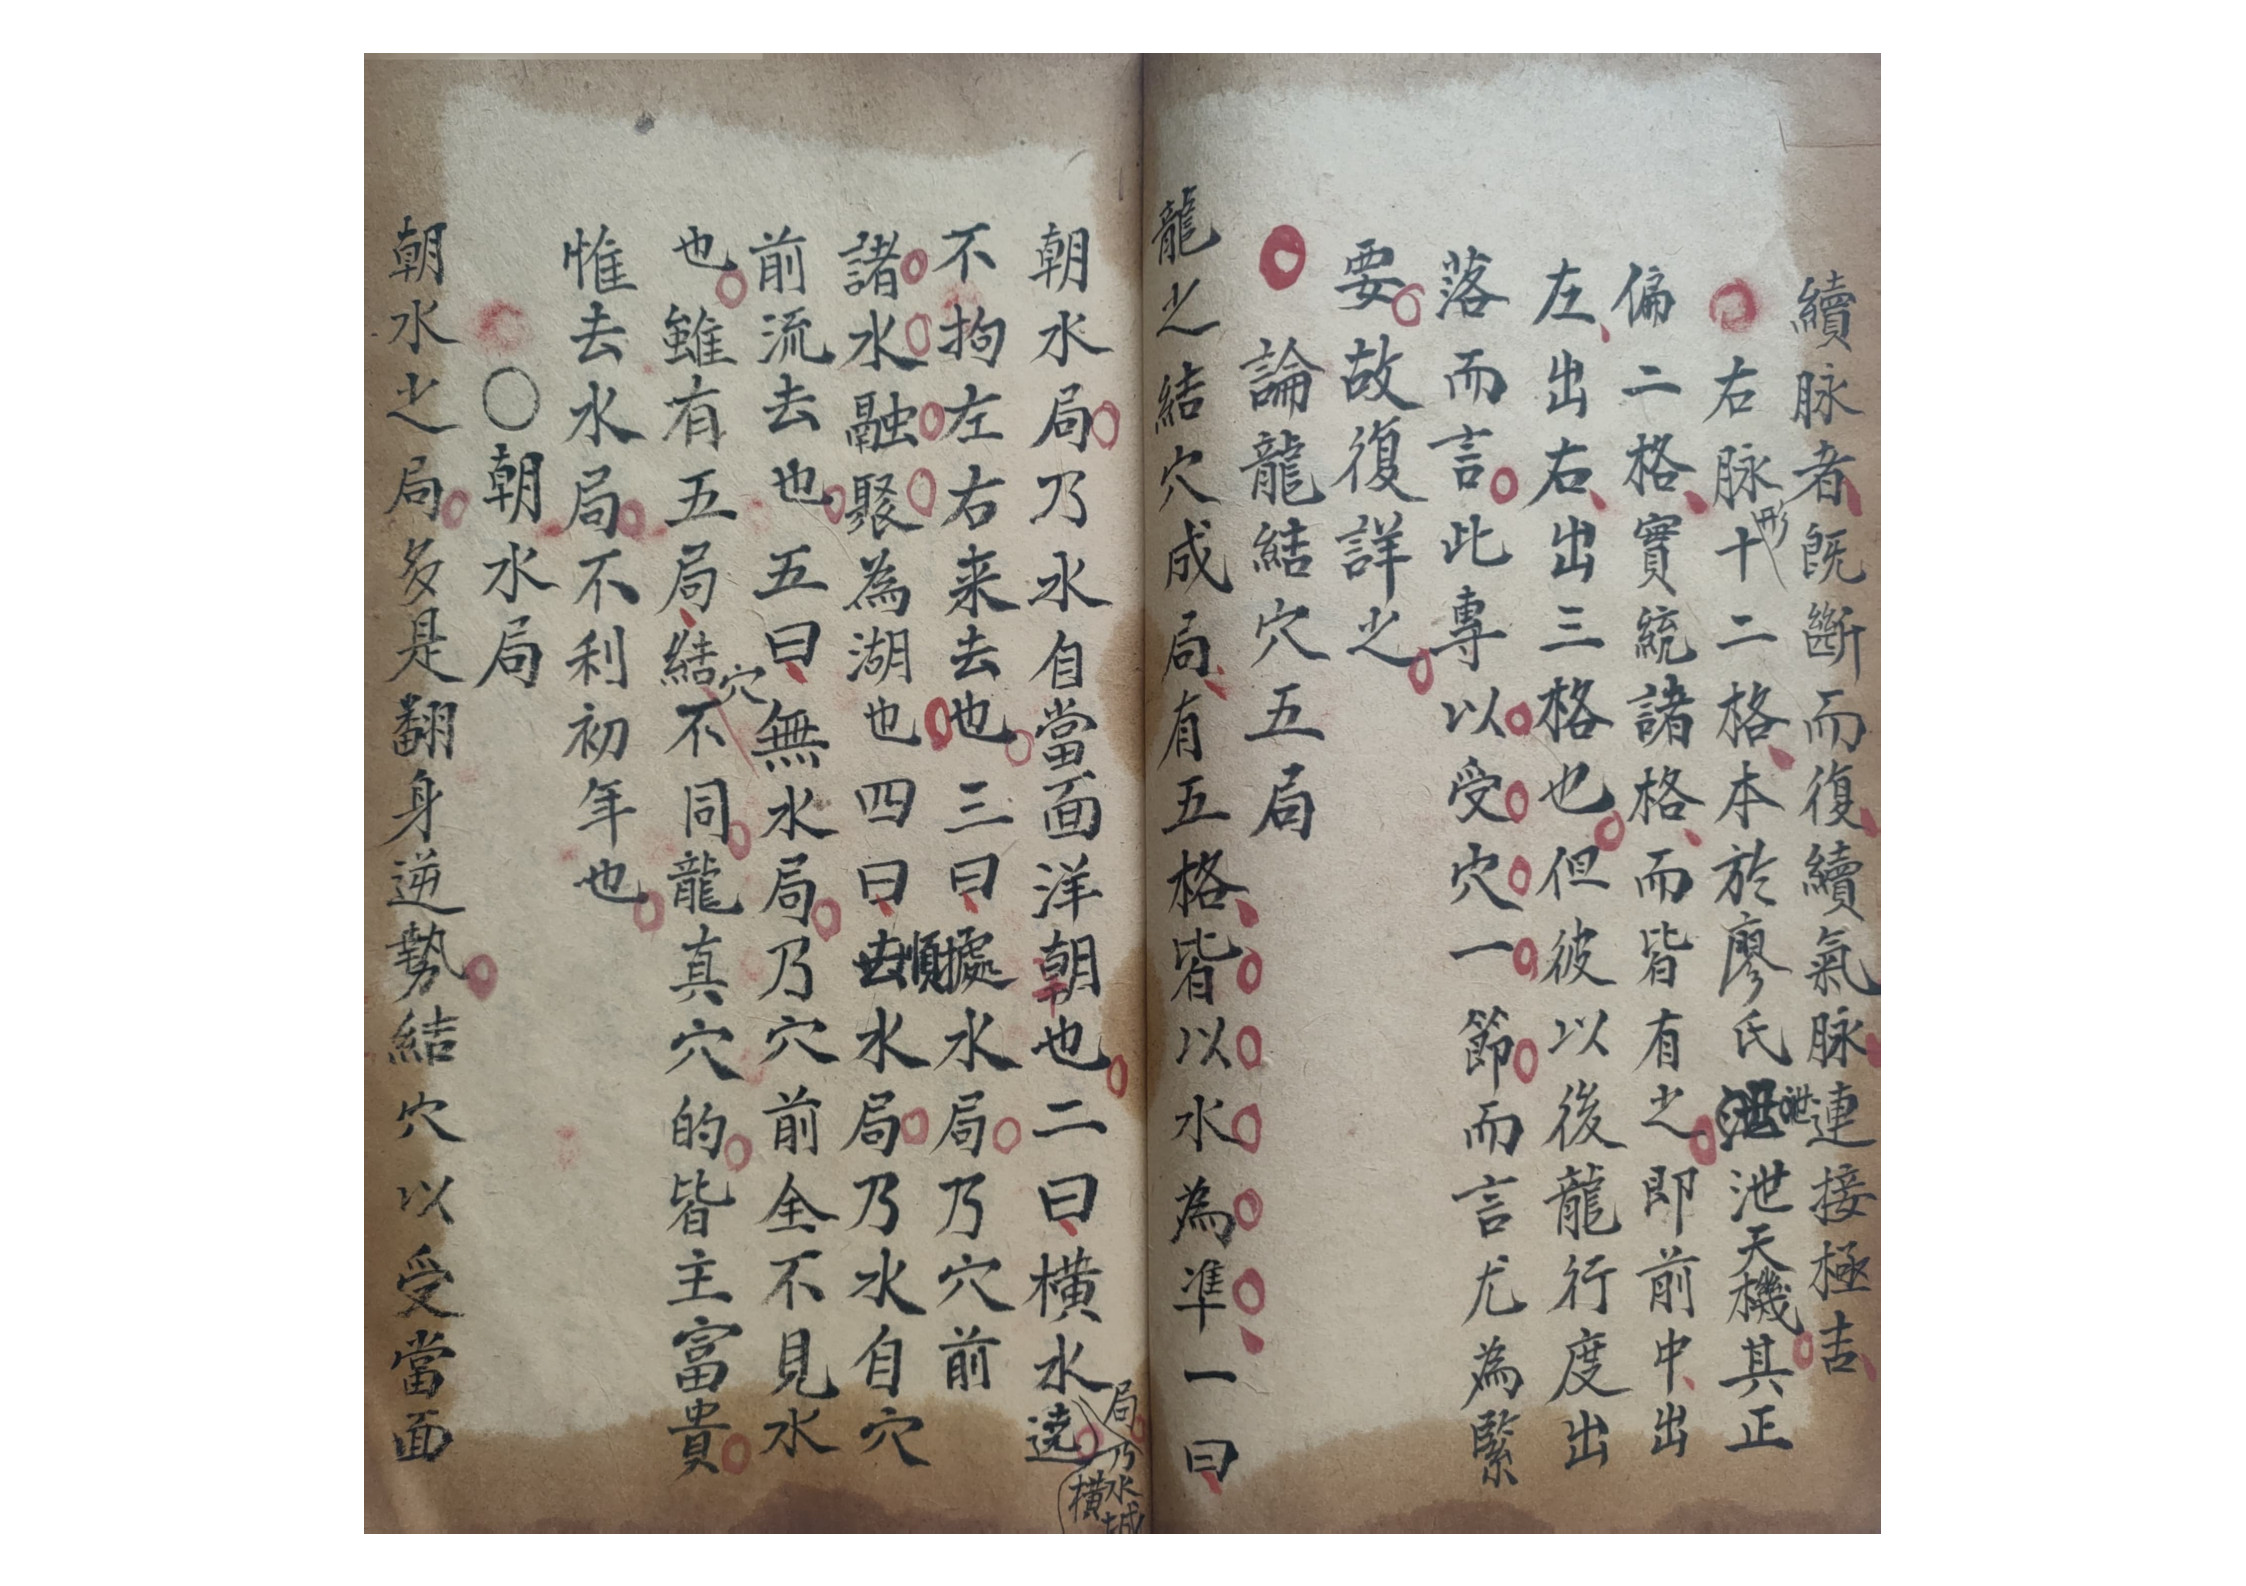 續脉者既斷而復續氣脉連接極吉
右脉形十二格本於廖氏泄泄天機其正
偏二格實統諸格而皆有之即前中出
左出右出三格也但彼以後龍行度出
落而言此專以受穴一節而言尤為緊
要故復詳之
論龍結穴五局
龍之結穴成局有五格皆以水為準一曰
朝水局乃水自當面洋朝也二曰橫水局乃水城橫遶
不拘左右来去也三曰據水局乃穴前
諸水融聚為湖也四曰順水局乃水自穴
前流去也五曰無水局乃穴前全不見水
也雖有五局結穴不同龍真穴的皆主富貴
惟去水局不利初年也
〇朝水局
朝水之局多是翻身逆勢結穴以受當面